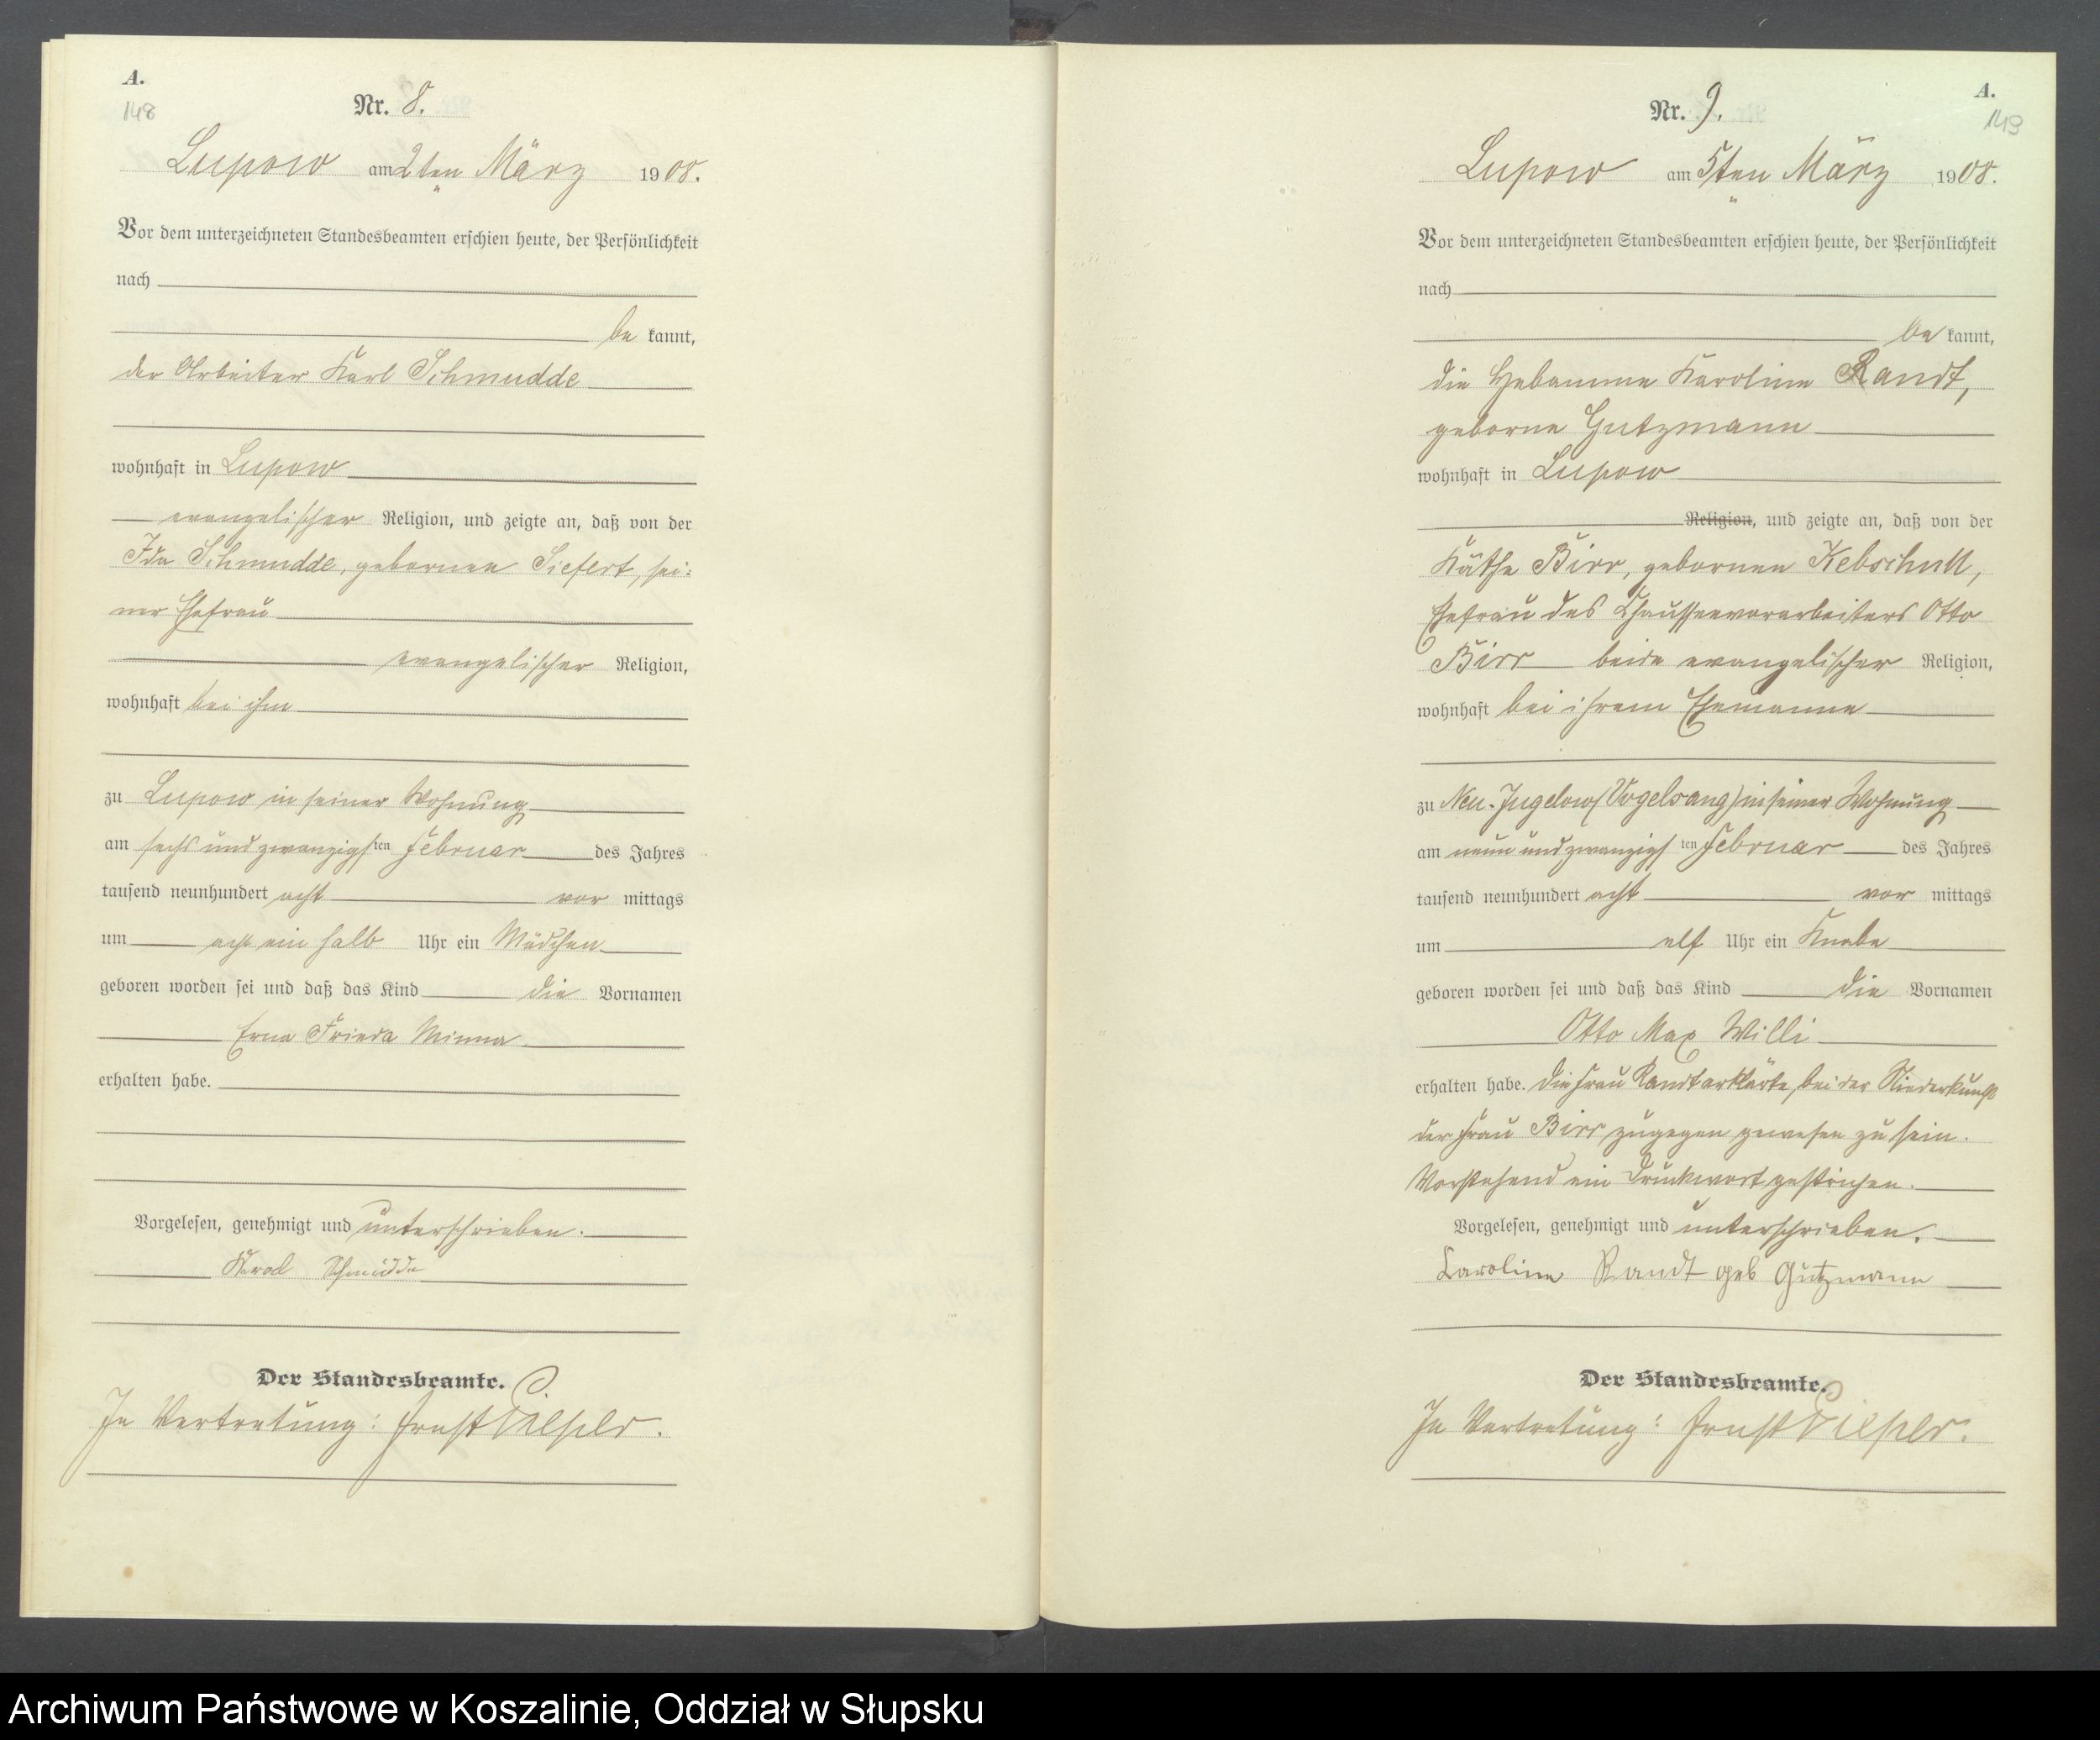 A.
148
Nr. 8.
Lupow am 2ten März 1908.
Vor dem unterzeichneten Standesbeamten erschien heute, der Persönlichkeit
nach
be kannt,
der Arbeiter Karl Schmudde
wohnhaft in Lupow
evangelischer Religion, und zeigte an, daß von der
Ida Schmudde, gebornen Siefert, sei:
ner Ehefrau
evangelischer Religion,
wohnhaft bei ihm
zu Lupow in seiner Wohnung
am sechs und zwanzigsten Februar des Jahres
tausend neunhundert acht vor mittags
um acht ein halb Uhr ein Mädchen
geboren worden sei und daß das Kind die Vornamen
Erna Frieda Minna
erhalten habe.
Vorgelesen, genehmigt und unterschrieben.
Karl Schmudde
Der Standesbeamte.
In Vertretung: Ernst
A.
149
Nr. 9.
Lupow am 5ten März 1908.
Vor dem unterzeichneten Standesbeamten erschien heute, der Persönlichkeit
nach
be kannt,
die Hebamme Karoline Randt,
geborne Gutzmann
wohnhaft in Lupow
Religion, und zeigte an, daß von der
Käthe Birr, gebornen Kebschull,
Ehefrau des Chausseevorarbeiters Otto
Birr beide evangelischer Religion,
wohnhaft bei ihrem Ehemanne
zu Neu-Jugelow (Vogelsang) in seiner Wohnung
am neun und zwanzigsten Februar des Jahres
tausend neunhundert acht vor mittags
um elf Uhr ein Knabe
geboren worden sei und daß das Kind die Vornamen
Otto Max Willi
erhalten habe. Die Frau Randt erklärte, bei der Niederkunft
der Frau Birr zugegen gewesen zu sein.
Vorstehend ein Druckwort gestrichen.
Vorgelesen, genehmigt und unterschrieben.
Karoline Randt geb Gutzmann
Der Standesbeamte.
In Vertretung: Ernst
Archiwum Państwowe w Koszalinie, Oddział w Słupsku